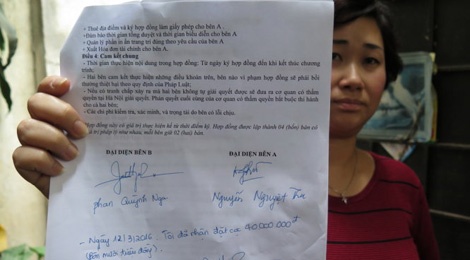 - Thuê địa điểm và ký hợp đồng làm giấy phép cho bên A .
- Đảm bảo thời gian tổng duyệt và thời gian biểu diễn cho bên A.
- Quản lý phần in ấn trang trí đúng theo yêu cầu của bên A.
- Xuất Hóa đơn tài chính cho bên A.
Điều 4. Cam kết chung
- Thời gian thực hiện nội dung trong hợp đồng: Từ ngày ký hợp đồng đến khi kết thúc chương
trình.
- Hai bên cam kết thực hiện những điều khoản trên, bên nào vi phạm hợp đồng sẽ phải bồi
thường thiệt hại theo quy định của Pháp Luật.
- Nếu có tranh chấp xảy ra mà hai bên không tự giải quyết được sẽ đưa ra cơ quan có thẩm
quyền tại Hà Nội giải quyết. Phán quyết cuối cùng của cơ quan có thẩm quyền bắt buộc thi hành
cho cả hai bên.
- Các chi phí kiểm tra, xác minh, và trọng tài do bên có lỗi chịu.
Hợp đồng này có giá trị thực hiện kể từ thời điểm ký. Hợp đồng được lập thành 04 (bốn) bản có
giá trị pháp lý như nhau, mỗi bên giữ 02 (hai) bản.
ĐẠI DIỆN BÊN B
ĐẠI DIỆN BÊN A
phan Quỳnh Nga
Nguyễn Nguyệt
- Ngày 12/3/2016. Tôi đã nhận đặt cọc 40.000.000đ
(Bốn mươi triệu đồng).